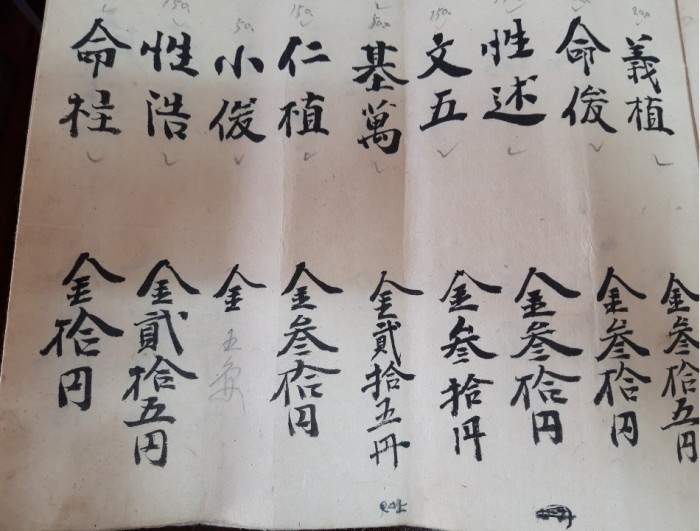 義植 金叁拾五円
命俊 金叁拾円
性述 金叁拾円
文五 金叁拾円
基萬 金貳拾五円
仁植 金叁拾円
小俊 金
性浩 金貳拾五円
命桂 金拾円
150
50
150
50
150